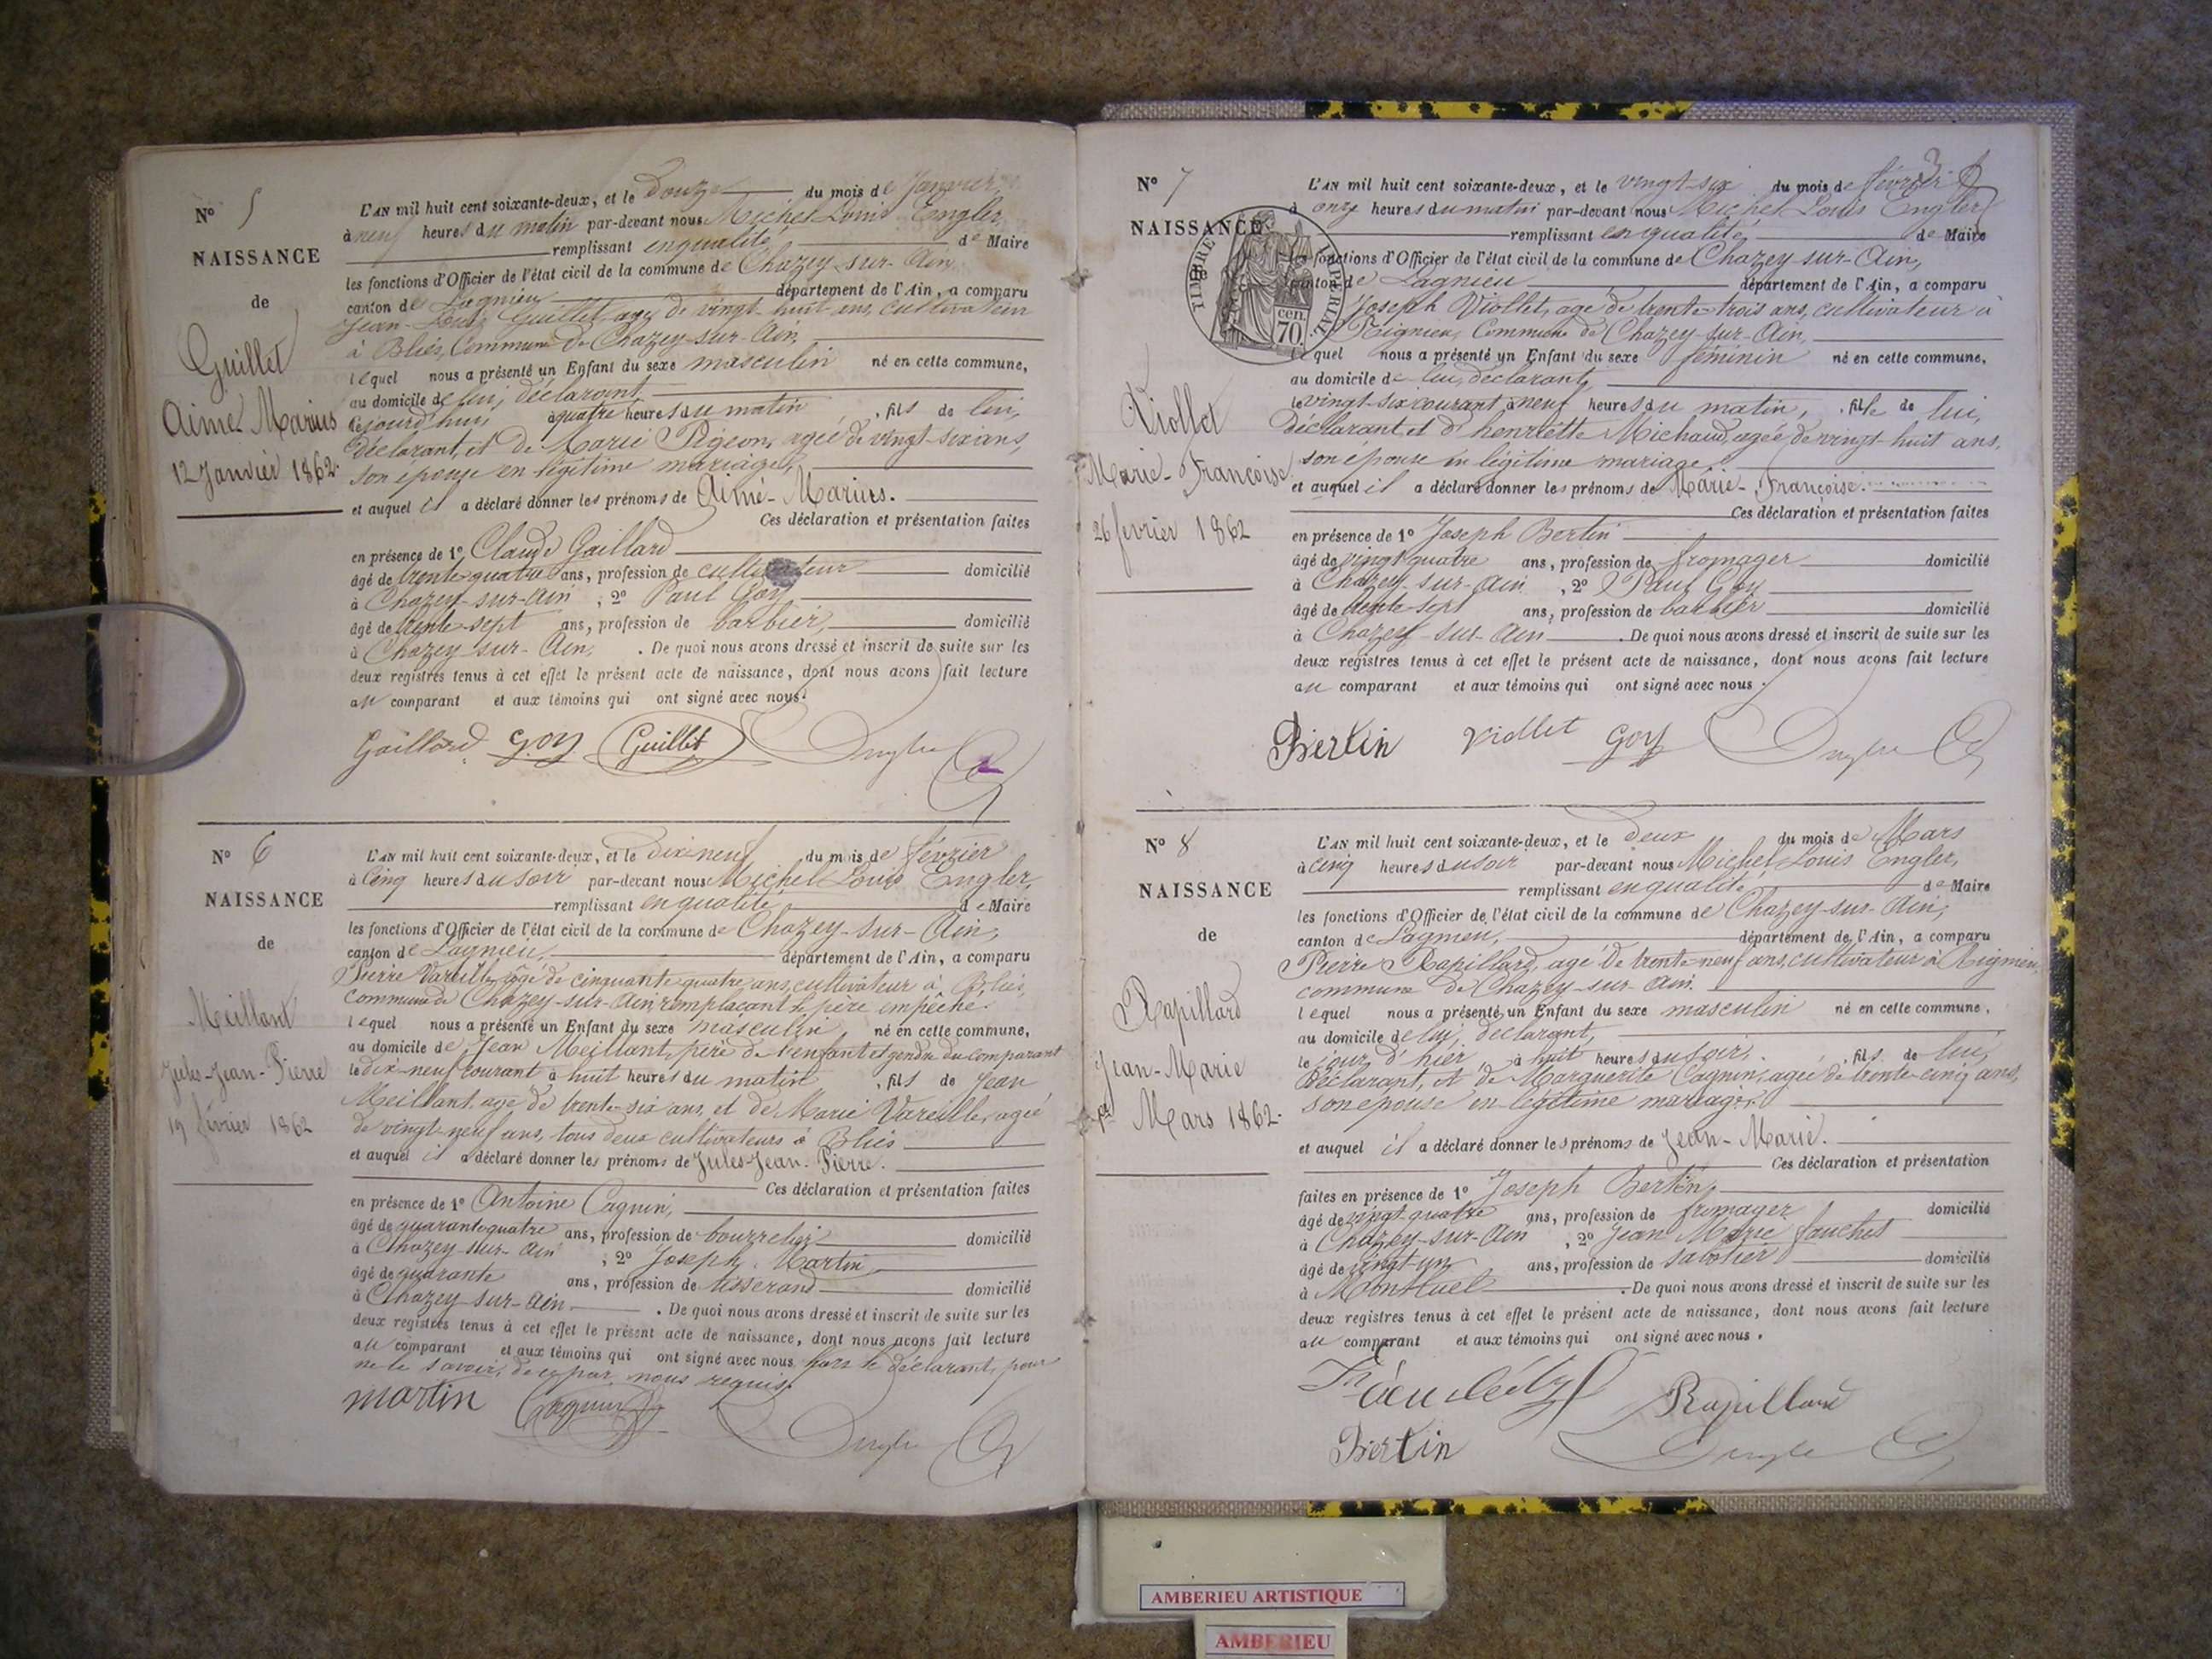 N° 5
NAISSANCE
de
Guillet
Aimé Marius
12 Janvier 1862.
L'AN mil huit cent soixante-deux, et le Douze du mois de Janvier,
à neuf heures du matin par-devant nous Michel Louis Engler,
remplissant en qualité de Maire
les fonctions d'Officier de l'état civil de la commune de Chazey-sur-Ain,
canton de Lagnieu département de l'Ain, a comparu
Jean-Louis Guillet, agé de vingt-huit ans, cultivateur
à Bliés, Commune de Chazey-sur-Ain,
lequel nous a présenté un Enfant du sexe masculin né en cette commune,
au domicile de lui, déclarant,
cejourd'hui, à quatre heures du matin, fils de lui,
déclarant, et de Marie Pigeon, agée de vingt-six ans,
son épouse en légitime mariage,
et auquel il a déclaré donner les prénoms de Aimé-Marius.
Ces déclaration et présentation faites
en présence de 1° Claude Gaillard
âgé de trente-quatre ans, profession de cultivateur domicilié
à Chazey-sur-Ain ; 2° Paul Goy
âgé de trente-sept ans, profession de barbier, domicilié
à Chazey-sur-Ain. De quoi nous avons dressé et inscrit de suite sur les
deux registres tenus à cet effet le présent acte de naissance, dont nous avons fait lecture
au comparant et aux témoins qui ont signé avec nous.
Gaillard Goy Guillet Engler
N° 6
NAISSANCE
de
Meillant
Jules-Jean-Pierre
19 février 1862
L'AN mil huit cent soixante-deux, et le dix-neuf du mois de février
à Cinq heures du soir par-devant nous Michel Louis Engler,
remplissant en qualité de Maire
les fonctions d'Officier de l'état civil de la commune de Chazey-sur-Ain,
canton de Lagnieu, département de l'Ain, a comparu
Pierre Vareille, agé de cinquante-quatre ans, cultivateur à Bliés,
commune de Chazey-sur-Ain, remplaçant le père empêché.
lequel nous a présenté un Enfant du sexe masculin, né en cette commune,
au domicile de Jean Meillant, père de l'enfant et gendre du comparant
le dix-neuf courant à huit heures du matin, fils de Jean
Meillant, agé de trente-six ans, et de Marie Vareille, agée
de vingt-neuf ans, tous deux cultivateurs à Bliés
et auquel il a déclaré donner les prénoms de Jules-Jean-Pierre.
Ces déclaration et présentation faites
en présence de 1° Antoine Cagnin,
âgé de quarante quatre ans, profession de bourrelier domicilié
à Chazey-sur-Ain ; 2° Joseph Martin
âgé de quarante ans, profession de tisserand domicilié
à Chazey-sur-Ain. De quoi nous avons dressé et inscrit de suite sur les
deux registres tenus à cet effet le présent acte de naissance, dont nous avons fait lecture
au comparant et aux témoins qui ont signé avec nous, hors le déclarant, pour
ne le savoir, de ce par nous requis.
martin Cagnin Engler
N° 7
NAISSANCE
TIMBRE IMPERIAL
70 cen.
Viollet
Marie-Françoise
26 février 1862
L'AN mil huit cent soixante-deux, et le vingt-six du mois de février
à onze heures du matin par-devant nous Michel Louis Engler
remplissant en qualité de Maire
les fonctions d'Officier de l'état civil de la commune de Chazey-sur-Ain,
canton de Lagnieu département de l'Ain, a comparu
Joseph Viollet, agé de trente-trois ans, cultivateur à
Rignieu, Commune de Chazey-sur-Ain,
lequel nous a présenté un Enfant du sexe féminin né en cette commune,
au domicile de lui, déclarant,
le vingt-six courant, à neuf heures du matin, fille de lui,
déclarant, et d'henriette Michaud, agée de vingt-huit ans,
son épouse en légitime mariage,
et auquel il a déclaré donner les prénoms de Marie-Françoise.
Ces déclaration et présentation faites
en présence de 1° Joseph Bertin
âgé de vingt quatre ans, profession de fromager domicilié
à Chazey-sur-Ain, 2° Paul Goy
âgé de trente-sept ans, profession de barbier domicilié
à Chazey-sur-Ain. De quoi nous avons dressé et inscrit de suite sur les
deux registres tenus à cet effet le présent acte de naissance, dont nous avons fait lecture
au comparant et aux témoins qui ont signé avec nous.
Bertin Viollet Goy Engler
N° 8
NAISSANCE
de
Rapillard
Jean-Marie
1er Mars 1862.
L'AN mil huit cent soixante-deux, et le deux du mois de Mars
à cinq heures du soir par-devant nous Michel Louis Engler,
remplissant en qualité de Maire
les fonctions d'Officier de l'état civil de la commune de Chazey-sur-Ain,
canton de Lagnieu, département de l'Ain, a comparu
Pierre Rapillard, agé de trente-neuf ans, cultivateur à Rignieu,
commune de Chazey-sur-Ain.
lequel nous a présenté un Enfant du sexe masculin né en cette commune,
au domicile de lui, déclarant,
le jour d'hier, à huit heures du soir, fils de lui,
déclarant, et de Marguerite Cagnin, agée de trente-cinq ans,
son épouse en légitime mariage.
et auquel il a déclaré donner les prénoms de Jean-Marie.
Ces déclaration et présentation
faites en présence de 1° Joseph Bertin,
âgé de vingt-quatre ans, profession de fromager domicilié
à Chazey-sur-Ain, 2° Jean Marie fauchet
âgé de vingt-un ans, profession de sabotier domicilié
à Montluel. De quoi nous avons dressé et inscrit de suite sur les
deux registres tenus à cet effet le présent acte de naissance, dont nous avons fait lecture
au comparant et aux témoins qui ont signé avec nous.
Rapillard
Bertin Engler
AMBERIEU ARTISTIQUE
AMBERIEU